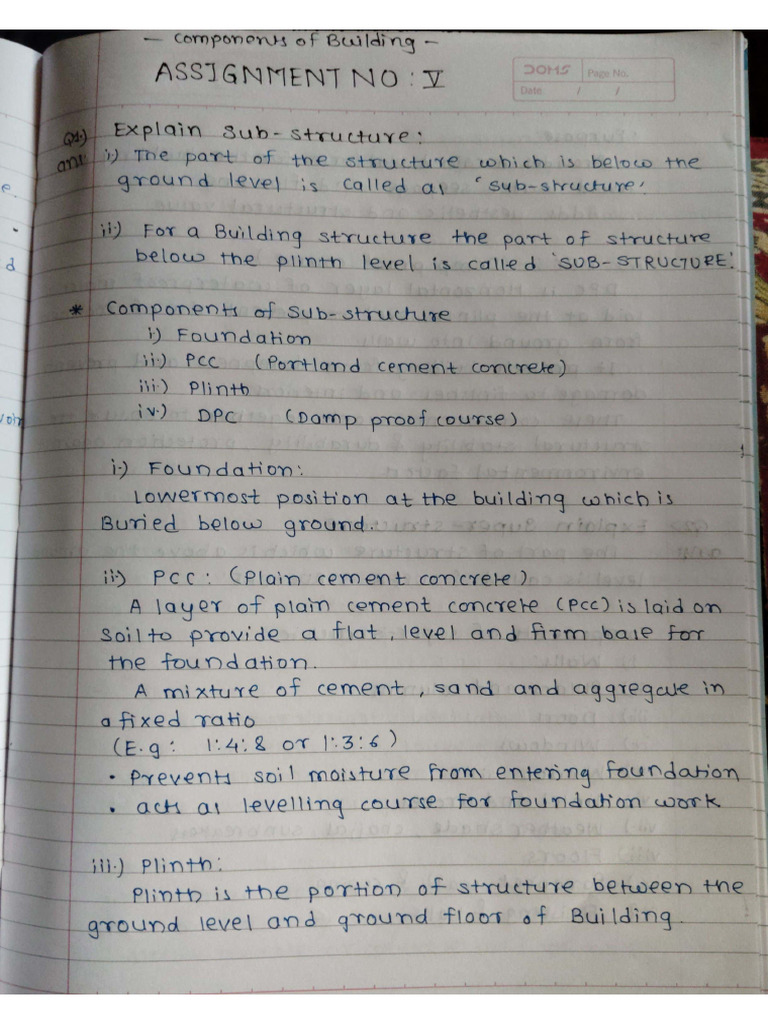 - Components of Building -
ASSIGNMENT NO : V
DOMS Page No.
Date / /
Q1.) Explain Sub-structure:
ans i) The part of the structure which is below the
ground level is called as 'sub-structure'
ii) For a Building structure the part of structure
below the plinth level is called 'SUB-STRUCTURE'.
* Components of Sub-structure
i) Foundation
ii) PCC (Portland cement concrete)
iii) Plinth
iv.) DPC (Damp proof course)
i.) Foundation:
Lowermost position at the building which is
Buried below ground.
ii) PCC: (Plain cement concrete)
A layer of plain cement concrete (PCC) is laid on
soil to provide a flat, level and firm base for
the foundation.
A mixture of cement, sand and aggregate in
a fixed ratio
(E.g: 1:4:8 or 1:3:6)
• Prevents soil moisture from entering foundation
• acts as levelling course for foundation work
iii.) Plinth:
Plinth is the portion of structure between the
ground level and ground floor of Building.